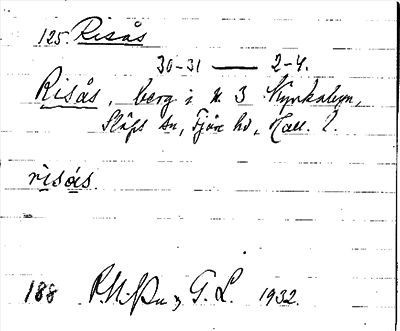 125. Risås
30-31 — 2-4.
Risås, berg i n. 3 Kyrkobyn,
Släps sn, Fjäre hd, Hall. l.
risås.
188 G. L. 1932.